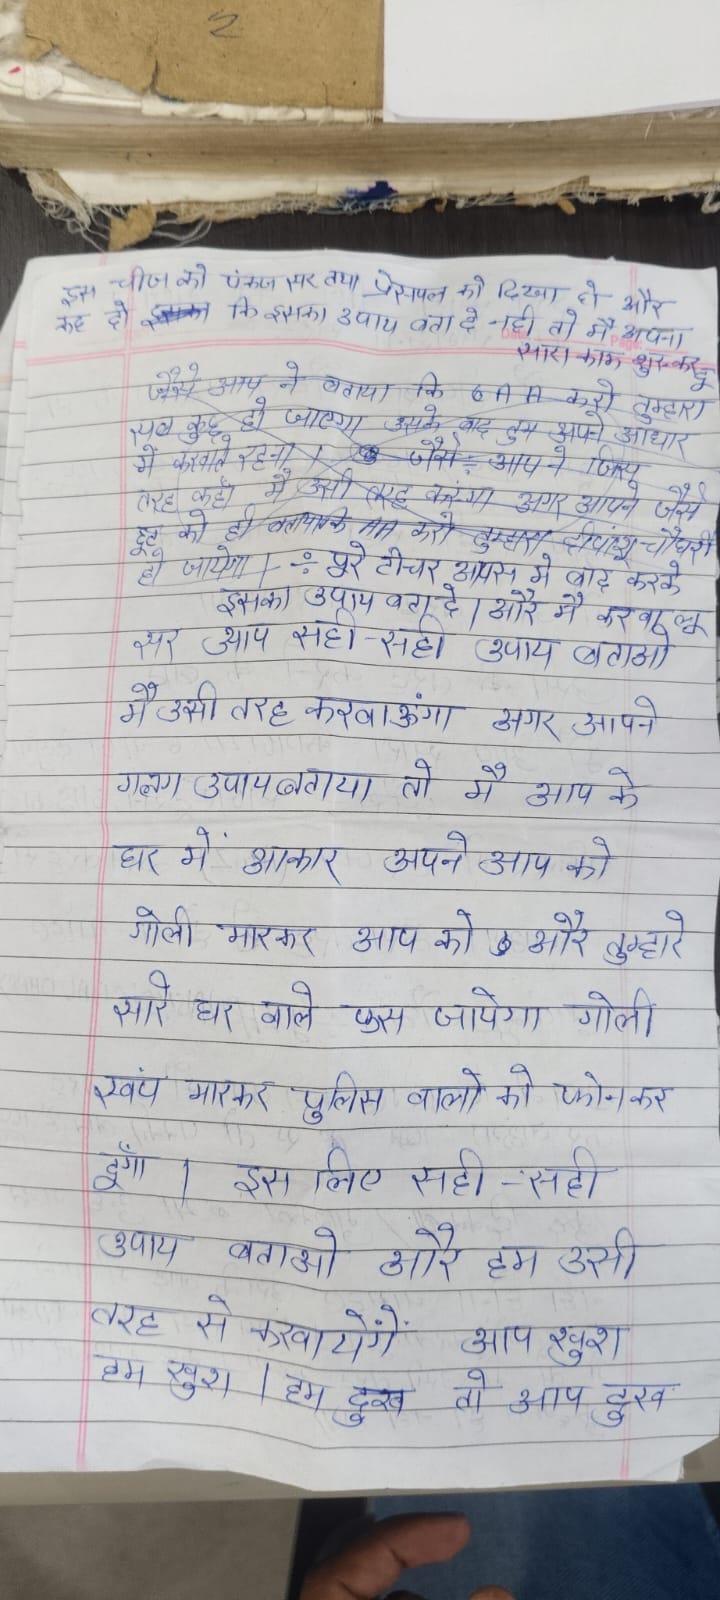 2
इस चीज को पंकज सर तथा प्रेसपल को दिखा दो और
कह दो कि इसका उपाय बता दे नही तो मैं अपना
सारा काम शुरू कर दू
जैसे आप ने बताया कि 6 A A करो तुम्हारा
सब कुछ हो जाएगा उसके बाद तुम अपने आधार
में करवाते रहना। जैसे ÷ आपने जिस
तरह कहाँ मैं उसी तरह करूंगा अगर आपने जैसे
को ही बताया कि AA करो तुम्हारा दीपांशू चौधरी
हो जायेगा। ÷ पुरे टीचर आपस मे बाद करके
इसका उपाय बता दे। और मैं करवा लू
सर आप सही-सही उपाय बताओ
मै उसी तरह करवाऊंगा अगर आपने
गलग उपाय बताया तो मैं आप के
घर में आकार अपने आप को
गोली मारकर आप को और तुम्हारे
सारे घर वाले फस जायेगा गोली
स्वंय मारकर पुलिस वालो को फोन कर
दूँगा। इस लिए सही-सही
उपाय बताओ और हम उसी
तरह से करवायेगें आप खुश
हम खुश। हम दुख तो आप दुख